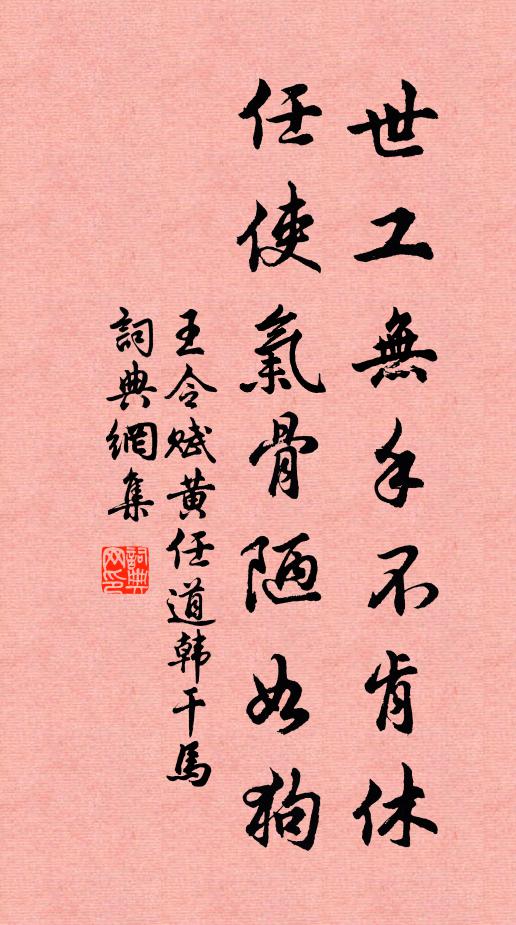 世工無手不肯休
任使氣骨陋如狗
王令賦黄任道韩干馬
詞典網集
詞典网印